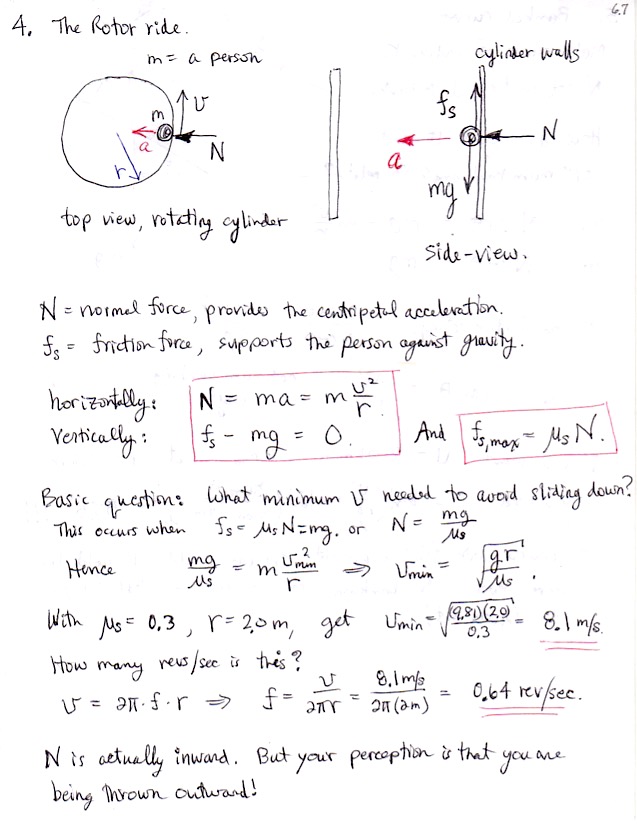 6.7
4. The Rotor ride.
m = a person
cylinder walls
m v a r N
f_s N a mg
top view, rotating cylinder
side-view.
N = normal force, provides the centripetal acceleration.
f_s = friction force, supports the person against gravity.
horizontally: N = ma = m v²/r
Vertically: f_s - mg = 0. And f_s,max = μ_s N.
Basic question: What minimum v needed to avoid sliding down?
This occurs when f_s = μ_s N = mg. or N = mg/μ_s
Hence mg/μ_s = m v²_min/r ⇒ v_min = √(gr/μ_s).
With μ_s = 0.3, r = 2.0 m, get v_min = √((9.81)(2.0)/0.3) = 8.1 m/s.
How many revs/sec is this?
v = 2π·f·r ⇒ f = v/2πr = 8.1 m/s/2π(2m) = 0.64 rev/sec.
N is actually inward. But your perception is that you are
being thrown outward!